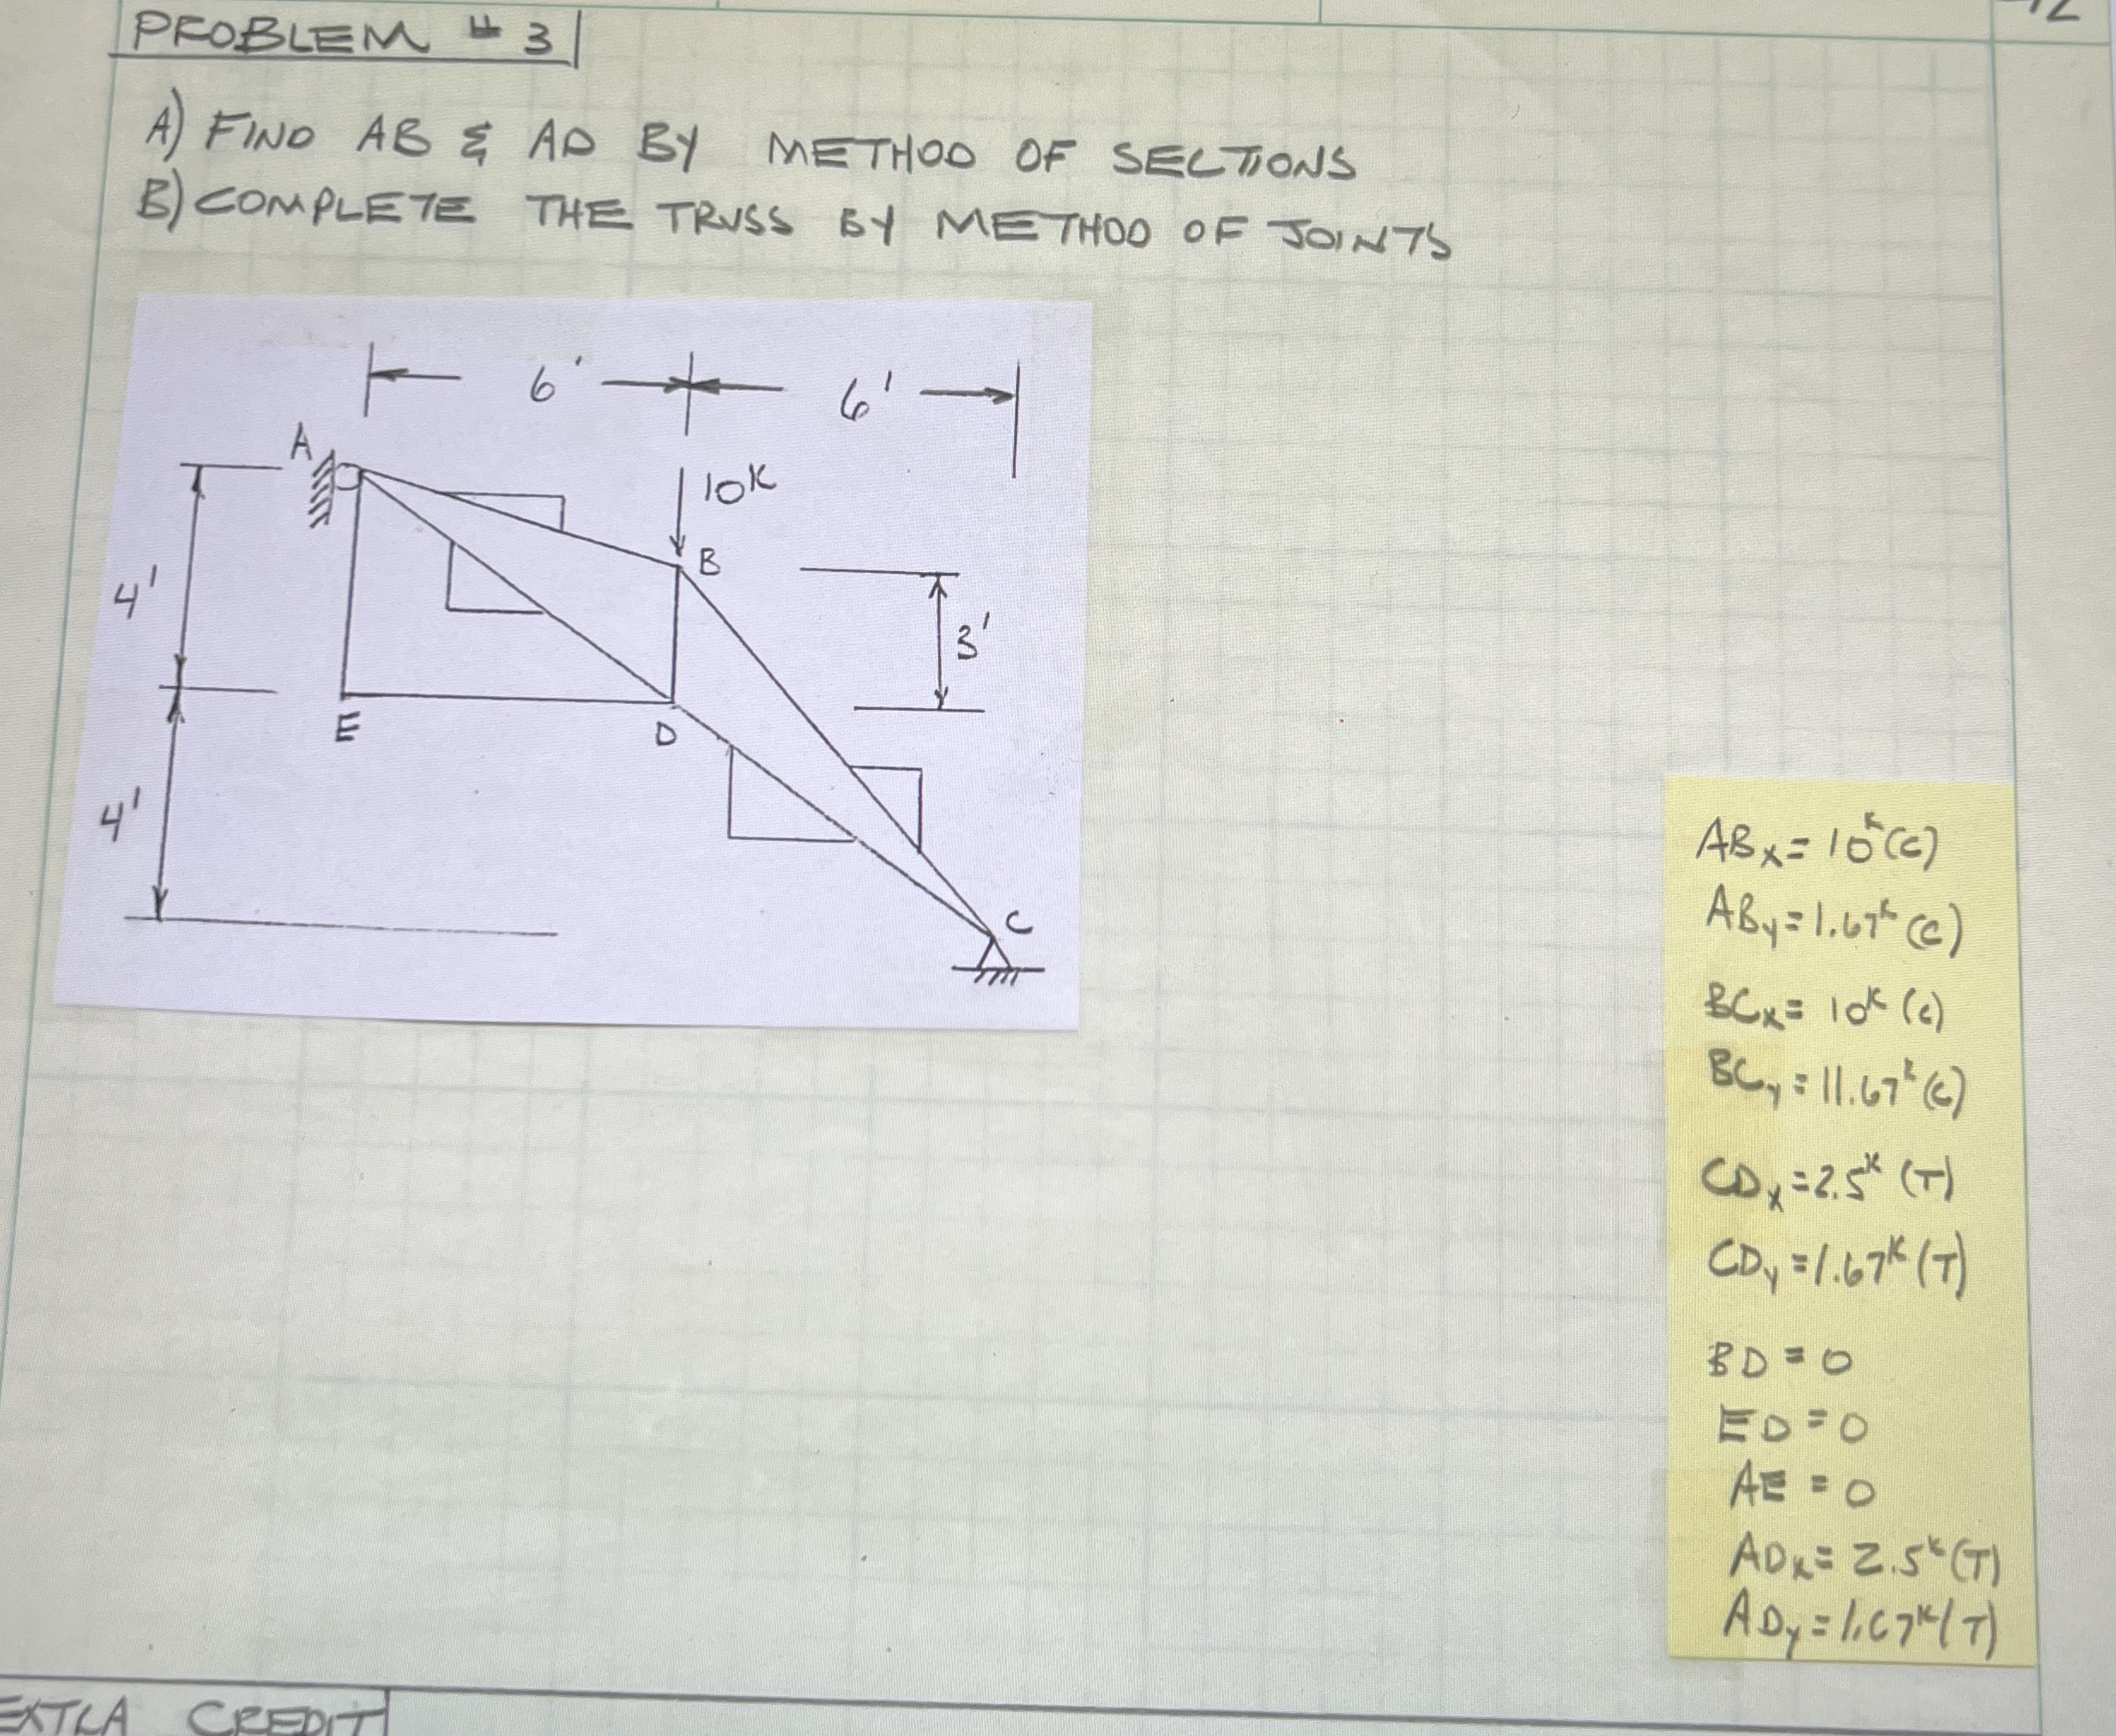 PROBLEM # 3
A) FIND AB & AD BY METHOD OF SECTIONS
B) COMPLETE THE TRUSS BY METHOD OF JOINTS
6' 6'
A
10K
B
4'
3'
E
D
4'
C
ABx = 10K (C)
ABy = 1.67K (C)
BCx = 10K (C)
BCy = 11.67K (C)
CDx = 2.5K (T)
CDy = 1.67K (T)
BD = 0
ED = 0
AE = 0
ADx = 2.5K (T)
ADy = 1.67K (T)
EXTRA CREDIT